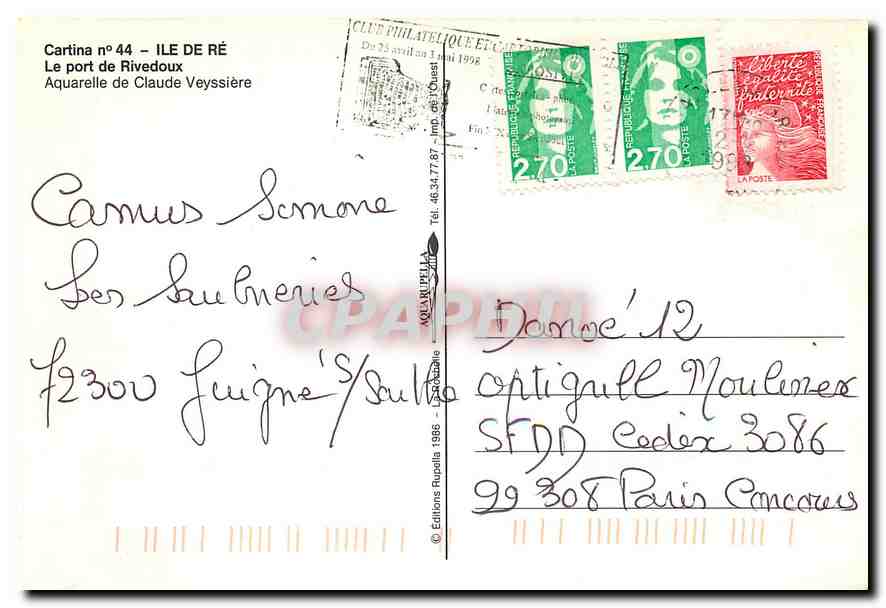 Cartina nº 44 – ILE DE RÉ
Le port de Rivedoux
Aquarelle de Claude Veyssière
CLUB PHILATELIQUE ET
Du 25 avril au 3 mai 1998
REPUBLIQUE FRANÇAISE
2,70
LA POSTE
REPUBLIQUE FRANÇAISE
2,70
LA POSTE
liberté
égalité
fraternité
REPUBLIQUE FRANÇAISE
LA POSTE
Camus Simone
Les Saulneries
72300 Juigné s/Sarthe
© Editions Rupella 1986 - La Rochelle
AQUARUPELLA
Tél. 46.34.77.87 - Imp. de l'Ouest
CPAPHIL
Danoé 12
Optigrill Moulinex
SFDD Cedex 3086
99 308 Paris Concours